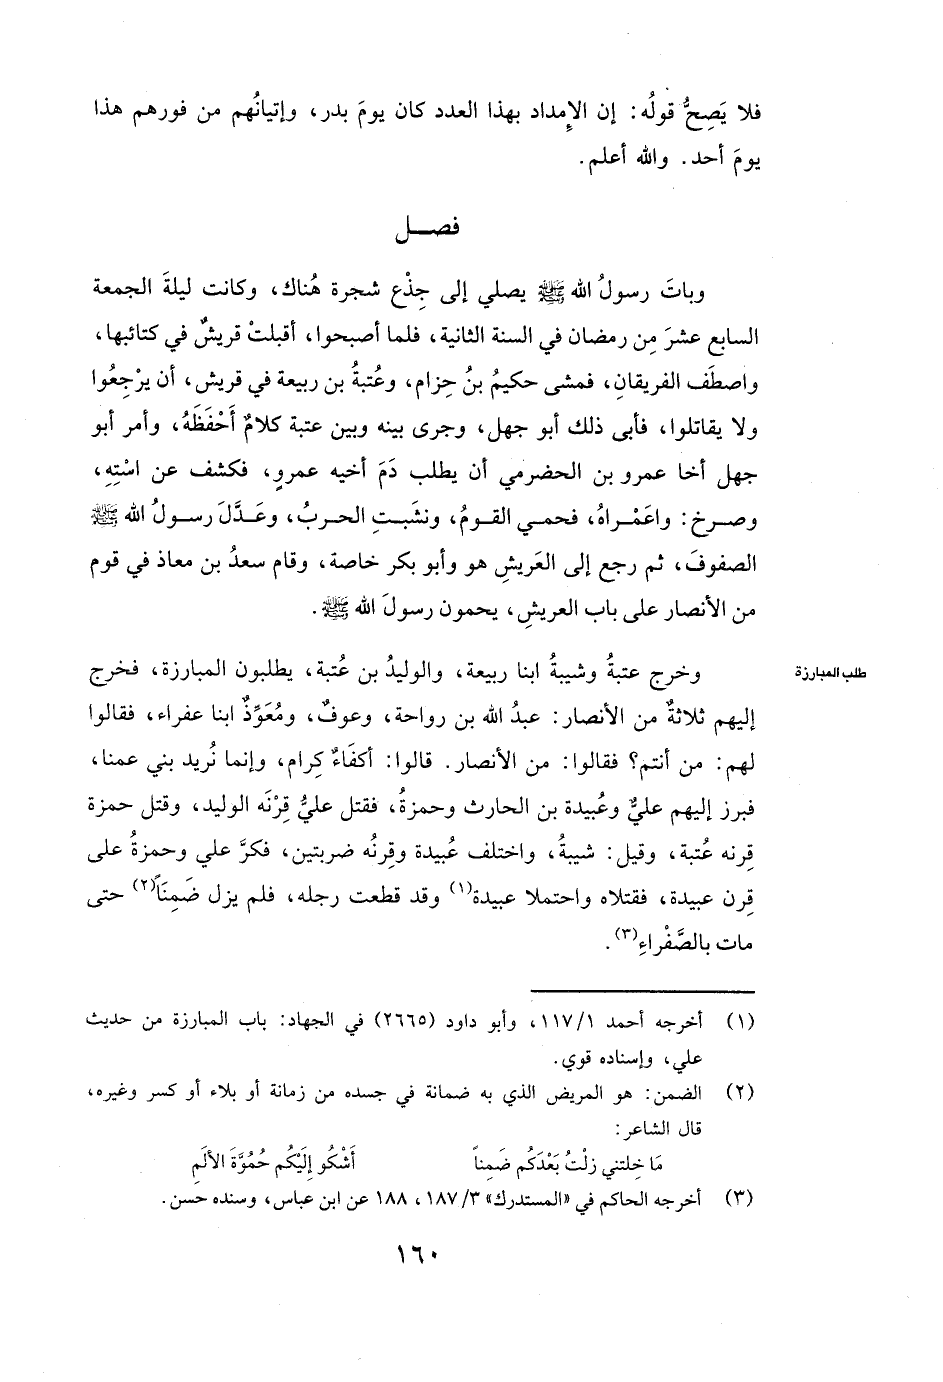 فلا يَصِحُّ قولُه: إن الإِمداد بهذا العدد كان يومَ بدر، وإتيانُهم من فورهم هذا
يومَ أحد. والله أعلم.
فصـــل
وباتَ رسولُ الله ﷺ يصلي إلى جِذْعِ شجرة هُناك، وكانت ليلةَ الجمعة
السابع عشرَ مِن رمضان في السنة الثانية، فلما أصبحوا، أقبلتْ قريشٌ في كتائبها،
واصطَف الفريقانِ، فمشى حكيمُ بنُ حِزام، وعُتبةُ بن ربيعة في قريش، أن يرْجِعُوا
ولا يقاتلوا، فأبى ذلك أبو جهل، وجرى بينه وبين عتبة كلامٌ أَحْفَظَهُ، وأمر أبو
جهل أخا عمرو بن الحضرمي أن يطلب دَمَ أخيه عمروٍ، فكشف عن اسْتِهِ،
وصرخ: واعَمْراهُ، فحمي القومُ، ونشَبتِ الحربُ، وعَدَّلَ رسولُ الله ﷺ
الصفوفَ، ثم رجع إلى العَريشِ هو وأبو بكر خاصة، وقام سعدُ بن معاذ في قوم
من الأنصار على باب العريشِ، يحمون رسولَ الله ﷺ.
طلب المبارزة
وخرج عتبةُ وشيبةُ ابنا ربيعة، والوليدُ بن عُتبة، يطلبون المبارزة، فخرج
إليهم ثلاثةٌ من الأنصار: عبدُ الله بن رواحة، وعوفٌ، ومُعَوِّذٌ ابنا عفراء، فقالوا
لهم: من أنتم؟ فقالوا: من الأنصار. قالوا: أكفَاءٌ كِرام، وإنما نُريد بني عمنا،
فبرز إليهم عليٌّ وعُبيدة بن الحارث وحمزةُ، فقتل عليُّ قِرْنَه الوليد، وقتل حمزة
قِرنه عُتبة، وقيل: شيبةُ، واختلف عُبيدة وقِرنُه ضربتين، فكرَّ علي وحمزةُ على
قِرن عبيدة، فقتلاه واحتملا عبيدة(١) وقد قطعت رجله، فلم يزل ضَمِنَاً(٢) حتى
مات بالصَّفْراءِ(٣).
(١) أخرجه أحمد ١١٧/١، وأبو داود (٢٦٦٥) في الجهاد: باب المبارزة من حديث
علي، وإسناده قوي.
(٢) الضمن: هو المريض الذي به ضمانة في جسده من زمانة أو بلاء أو كسر وغيره،
قال الشاعر:
مَا خِلتني زلْتُ بَعْدَكُم ضَمِناً أَشْكُو إِلَيْكُم حُمُوَّةَ الألَمِ
(٣) أخرجه الحاكم في «المستدرك» ١٨٧/٣، ١٨٨ عن ابن عباس، وسنده حسن.
١٦٠